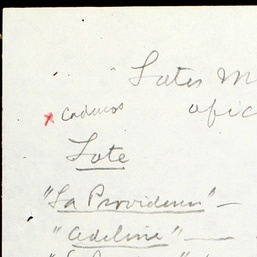 Lotes M
x Caducos ofic
Lote
"La Providencia" —
"Adelina" —